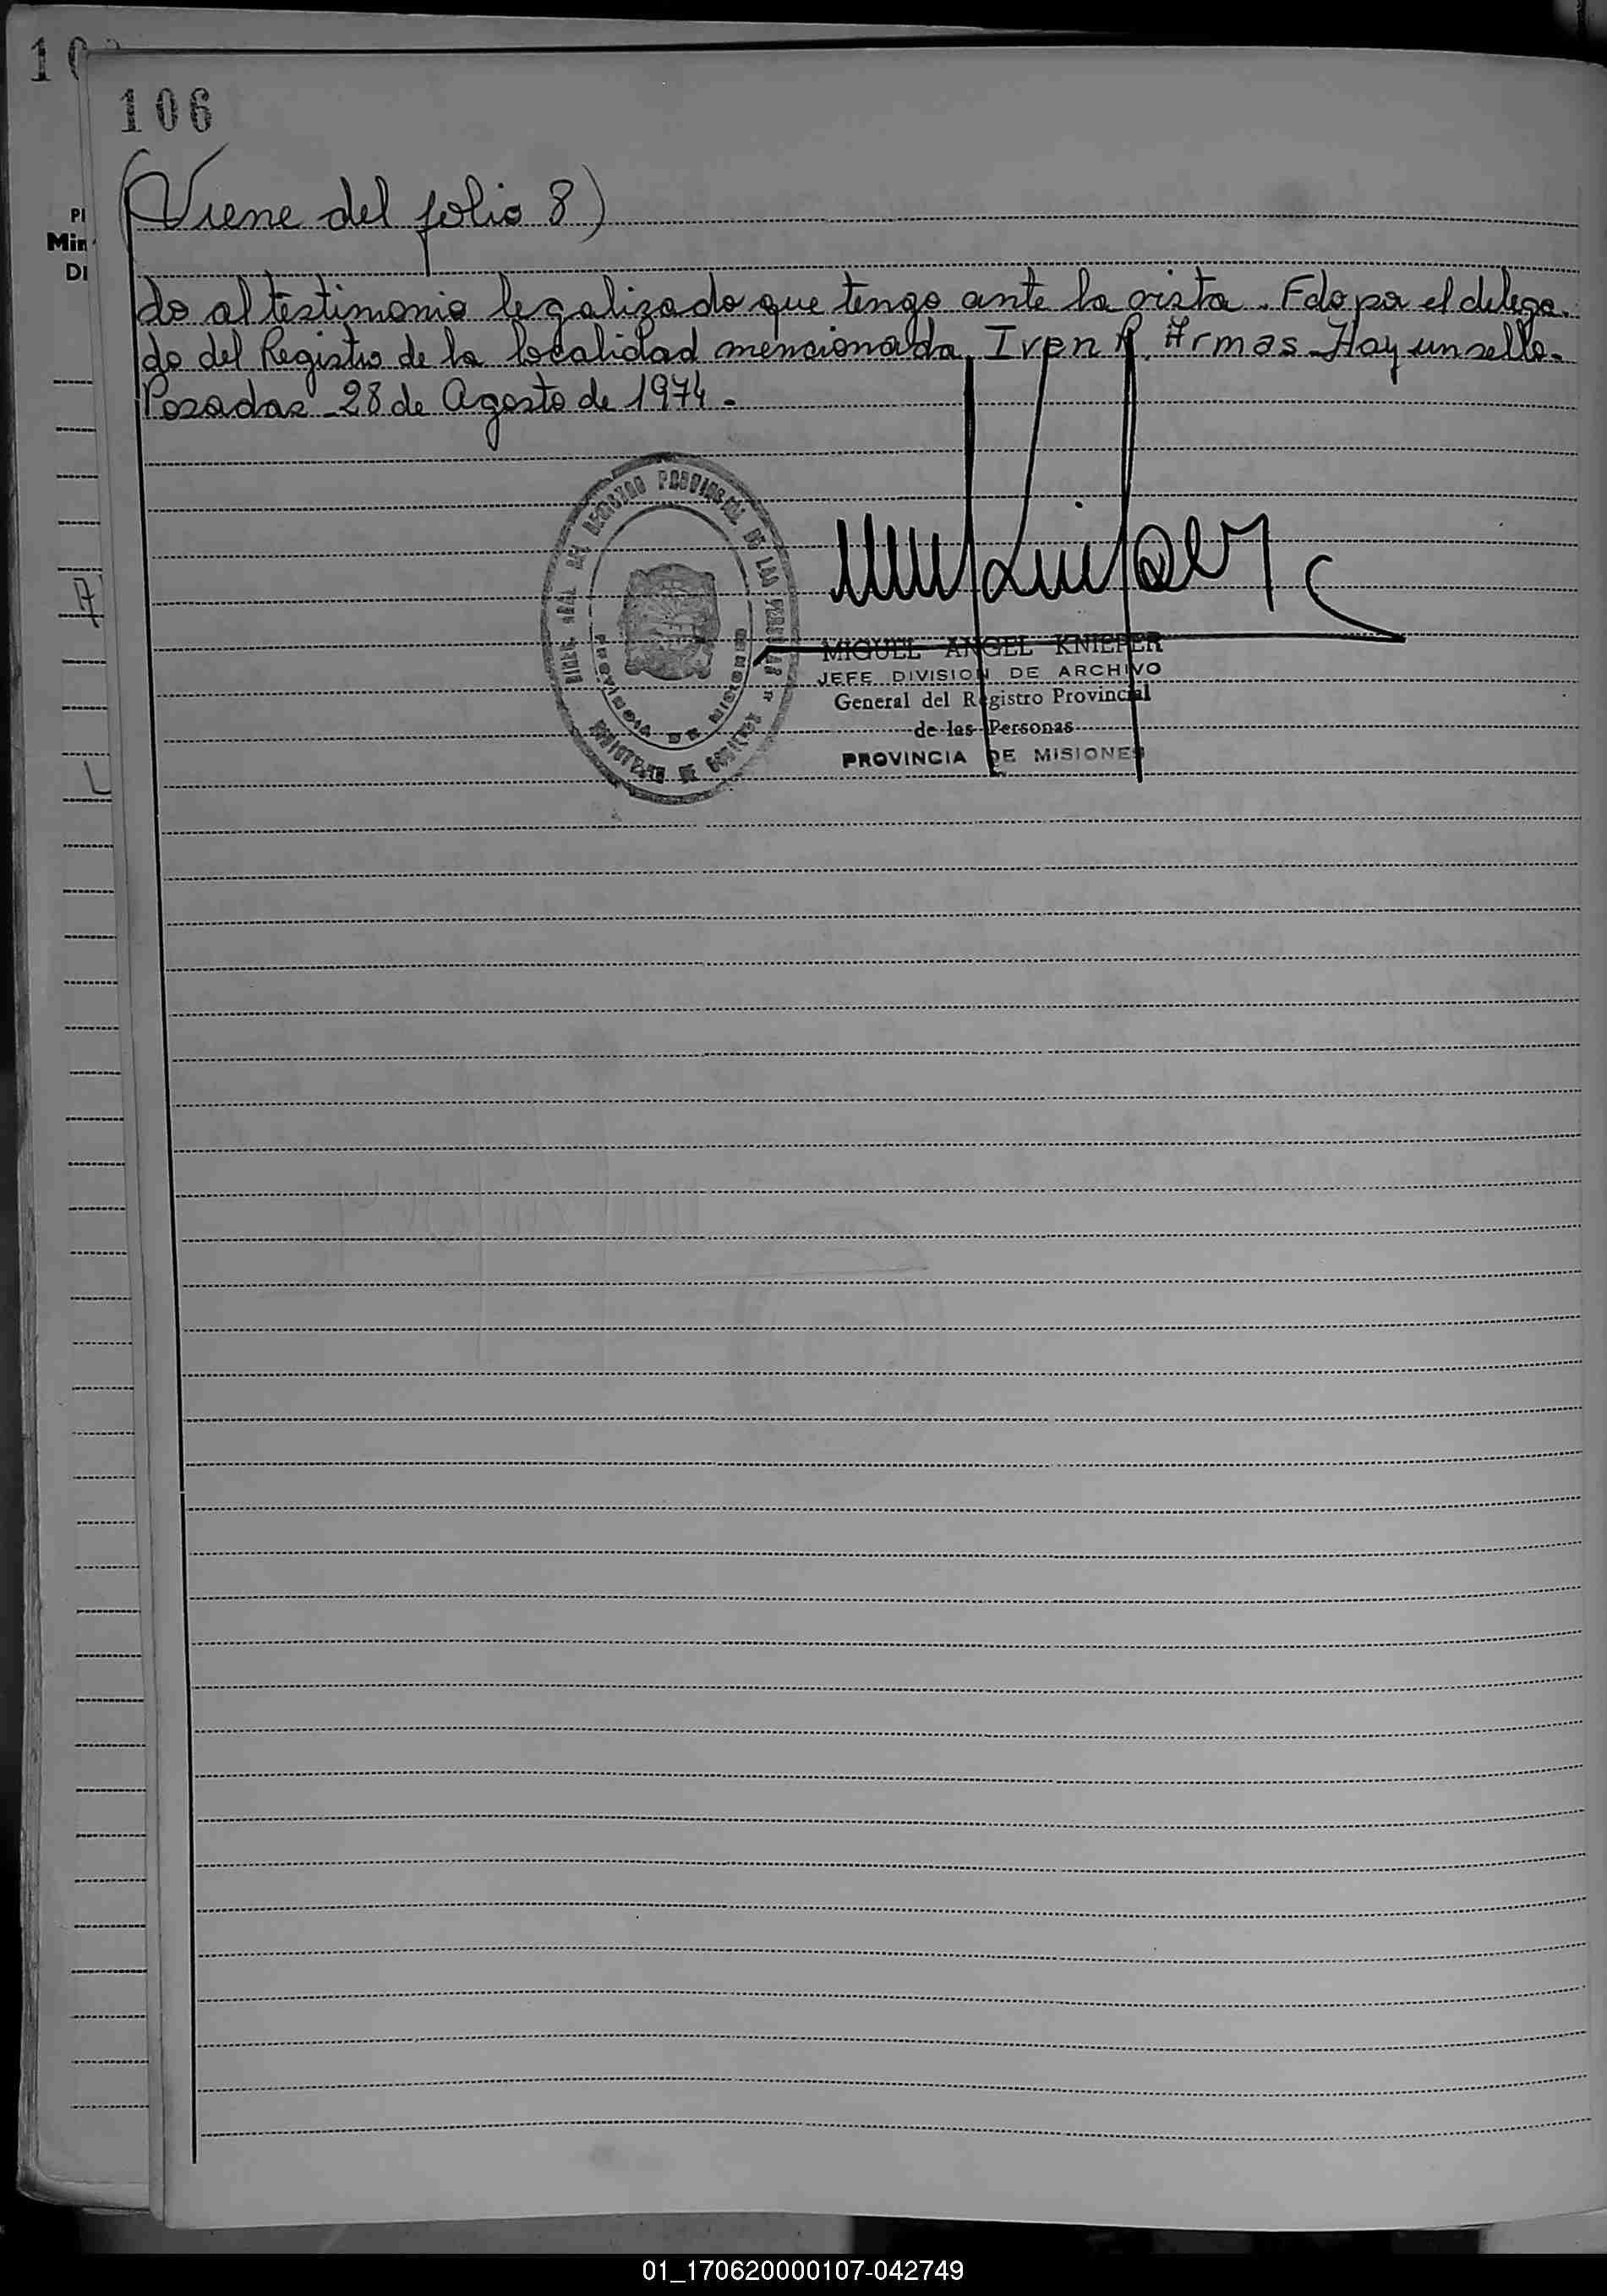 106
(Viene del folio 8)
do al testimonio legalizado que tengo ante la vista. Fdo por el delega-
do del Registro de la localidad mencionada. Iven R. Armas - Hay un sello.-
Posadas - 28 de Agosto de 1974 -
DIREC. GRAL. DEL REGISTRO PROVINCIAL DE LAS PERSONAS
PROVINCIA DE MISIONES
MINISTERIO DE GOBIERNO
MIGUEL ANGEL KNIEPER
JEFE DIVISION DE ARCHIVO
General del Registro Provincial
de las Personas
PROVINCIA DE MISIONES
01_170620000107-042749